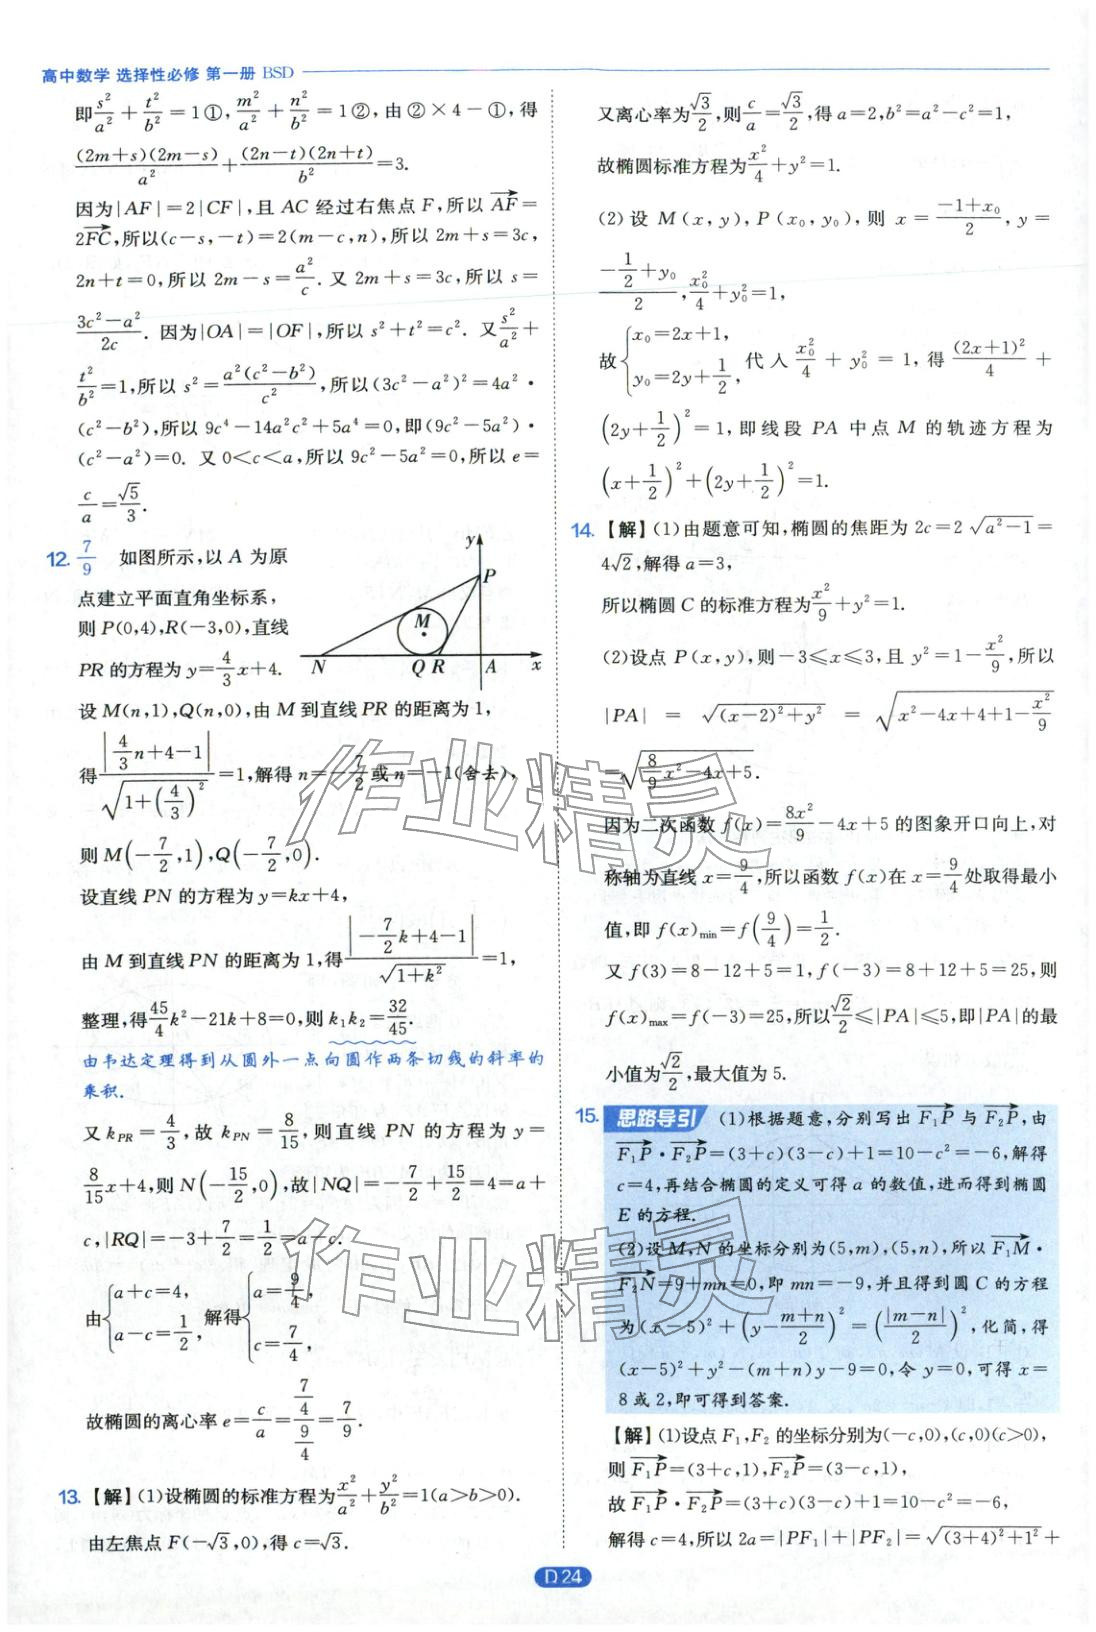 高中数学 选择性必修 第一册 BSD
即s²/a²+t²/b²=1①,m²/a²+n²/b²=1②,由②×4-①,得
(2m+s)(2m-s)/a²+(2n-t)(2n+t)/b²=3.
因为|AF|=2|CF|,且 AC 经过右焦点 F,所以 AF→=
2FC→,所以(c-s,-t)=2(m-c,n),所以 2m+s=3c,
2n+t=0,所以 2m-s=a²/c.又 2m+s=3c,所以 s=
(3c²-a²)/2c.因为|OA|=|OF|,所以 s²+t²=c².又s²/a²+
t²/b²=1,所以 s²=a²(c²-b²)/c²,所以(3c²-a²)²=4a²·
(c²-b²),所以 9c⁴-14a²c²+5a⁴=0,即(9c²-5a²)·
(c²-a²)=0.又 0<c<a,所以 9c²-5a²=0,所以 e=
c/a=√5/3.
12. 7/9 如图所示,以 A 为原
点建立平面直角坐标系,
则 P(0,4),R(-3,0),直线
PR 的方程为 y=4/3x+4.
y
P
M
N Q R A x
设 M(n,1),Q(n,0),由 M 到直线 PR 的距离为 1,
得|4/3n+4-1|/√(1+(4/3)²)=1,解得 n=-7/2或 n=-1(舍去),
则 M(-7/2,1),Q(-7/2,0).
设直线 PN 的方程为 y=kx+4,
由 M 到直线 PN 的距离为 1,得|-7/2k+4-1|/√(1+k²)=1,
整理,得45/4k²-21k+8=0,则 k₁k₂=32/45.
由韦达定理得到从圆外一点向圆作两条切线的斜率的
乘积.
又 kPR=4/3,故 kPN=8/15,则直线 PN 的方程为 y=
8/15x+4,则 N(-15/2,0),故|NQ|=-7/2+15/2=4=a+
c,|RQ|=-3+7/2=1/2=a-c.
由{a+c=4, a-c=1/2, 解得{a=9/4, c=7/4,
故椭圆的离心率 e=c/a=(7/4)/(9/4)=7/9.
13.【解】(1)设椭圆的标准方程为x²/a²+y²/b²=1(a>b>0).
由左焦点 F(-√3,0),得 c=√3.
又离心率为√3/2,则c/a=√3/2,得 a=2,b²=a²-c²=1,
故椭圆标准方程为x²/4+y²=1.
(2)设 M(x,y),P(x₀,y₀),则 x=(-1+x₀)/2,y=
(-1/2+y₀)/2,x₀²/4+y₀²=1,
故{x₀=2x+1, y₀=2y+1/2, 代入x₀²/4+y₀²=1,得(2x+1)²/4+
(2y+1/2)²=1,即线段 PA 中点 M 的轨迹方程为
(x+1/2)²+(2y+1/2)²=1.
14.【解】(1)由题意可知,椭圆的焦距为 2c=2√(a²-1)=
4√2,解得 a=3,
所以椭圆 C 的标准方程为x²/9+y²=1.
(2)设点 P(x,y),则-3≤x≤3,且 y²=1-x²/9,所以
|PA|=√((x-2)²+y²)=√(x²-4x+4+1-x²/9)
=√(8/9x²-4x+5).
因为二次函数 f(x)=8x²/9-4x+5 的图象开口向上,对
称轴为直线 x=9/4,所以函数 f(x)在 x=9/4处取得最小
值,即 f(x)min=f(9/4)=1/2.
又 f(3)=8-12+5=1,f(-3)=8+12+5=25,则
f(x)max=f(-3)=25,所以√2/2≤|PA|≤5,即|PA|的最
小值为√2/2,最大值为 5.
15. 思路导引 (1)根据题意,分别写出 F₁P→与 F₂P→,由
F₁P→·F₂P→=(3+c)(3-c)+1=10-c²=-6,解得
c=4,再结合椭圆的定义可得 a 的数值,进而得到椭圆
E 的方程.
(2)设 M,N 的坐标分别为(5,m),(5,n),所以 F₁M→·
F₂N→=9+mn=0,即 mn=-9,并且得到圆 C 的方程
为(x-5)²+(y-(m+n)/2)²=(|m-n|/2)²,化简,得
(x-5)²+y²-(m+n)y-9=0,令 y=0,可得 x=
8 或 2,即可得到答案.
【解】(1)设点 F₁,F₂ 的坐标分别为(-c,0),(c,0)(c>0),
则 F₁P→=(3+c,1),F₂P→=(3-c,1),
故 F₁P→·F₂P→=(3+c)(3-c)+1=10-c²=-6,
解得 c=4,所以 2a=|PF₁|+|PF₂|=√((3+4)²+1²)+
D24
作业精灵
作业精灵